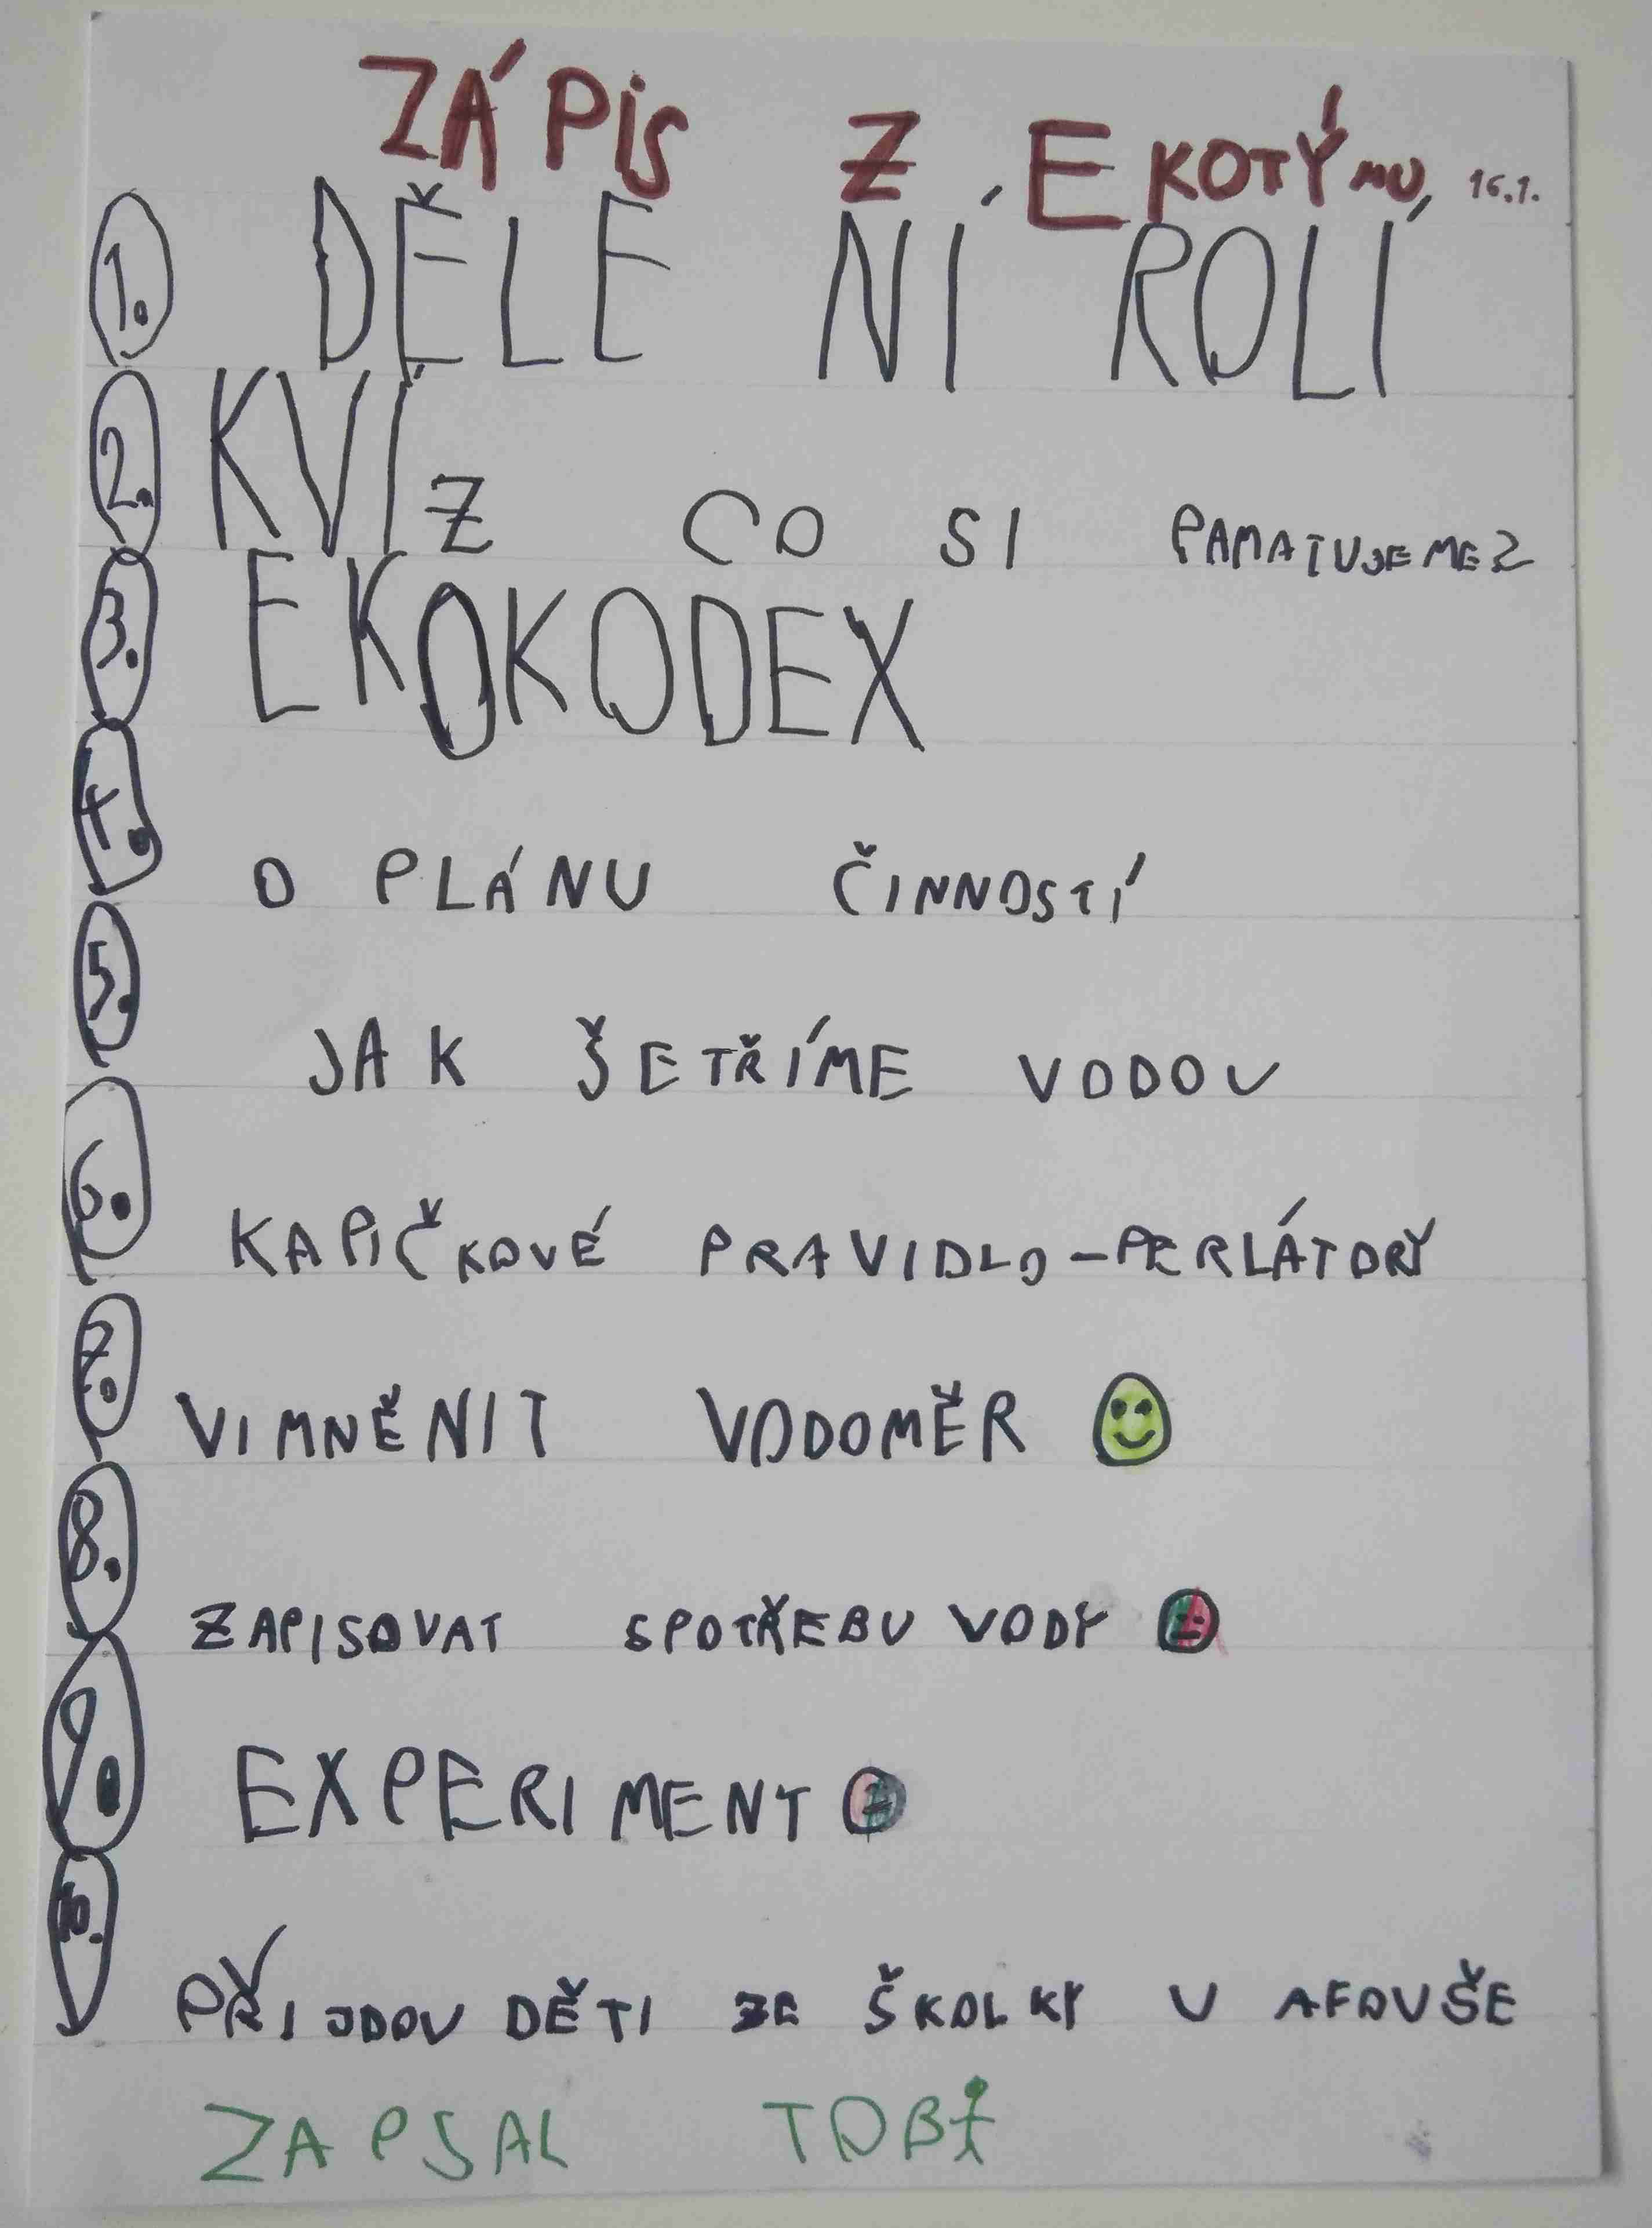 ZÁPIS Z EKOTÝMU, 16.1.
1. DĚLENÍ ROLÍ
2. KVÍZ CO SI PAMATUJEME?
3. EKOKODEX
4. O PLÁNU ČINNOSTÍ
5. JAK ŠETŘÍME VODOU
6. KAPIČKOVÉ PRAVIDLO - PERLÁTORY
7. VIMNĚNIT VODOMĚR
8. ZAPISOVAT SPOTŘEBU VODY
9. EXPERIMENT
10. PŘIJDOU DĚTI ZE ŠKOLKY U AFOUŠE
ZAPSAL TOBI